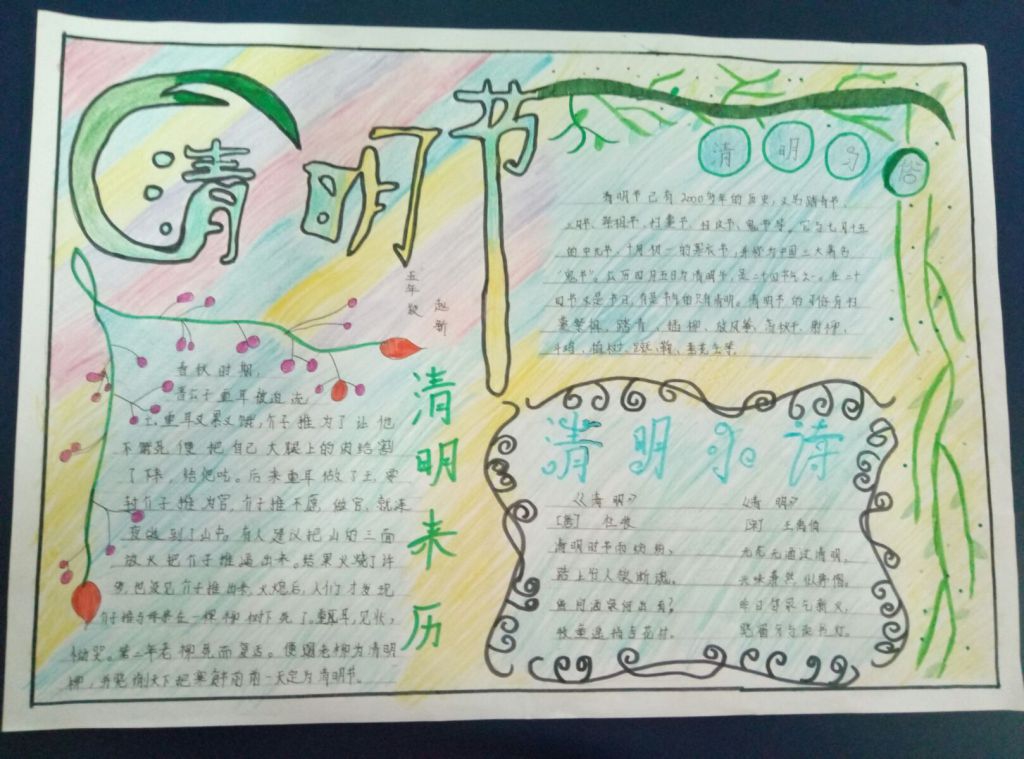 清明节
五年级
赵新
清明习俗
清明节已有2000多年的历史,又名踏青节、
三月节、祭祖节、扫墓节、扫坟节、鬼节等。它与七月十五
的中元节、十月初一的寒衣节,并称为中国三大著名
"鬼节"。公历四月五日为清明节,是二十四节气之一。在二十
四节气中是节日,有是节气的只有清明。清明节的习俗有
禁火、踏青、插柳、放风筝、荡秋千、
斗鸡、植树、
清明来历
春秋时期,
晋公子重耳被迫流
亡,重耳又累又饿,介子推为了让他
不饿死便把自己大腿上的肉给割
了下来,给他吃。后来重耳做了王,要
封介子推为官,介子推不愿做官,就连
夜逃到了山中。有人建议把山的三面
放火把介子推逼出来。结果火烧了许
久也没见介子推出来。火熄后,人们才发现
介子推与母亲在一棵柳树下死了。重耳,见状,
恸哭。第二年老柳死而复活。便赐老柳为清明
柳,并晓谕天下把寒食节的前一天定为清明节。
清明小诗
《清明》
[唐] 杜牧
清明时节雨纷纷,
路上行人欲断魂。
借问酒家何处有?
牧童遥指杏花村。
《清明》
[宋] 王禹偁
无花无酒过清明,
兴味萧然似野僧。
昨日邻家乞新火,
晓窗分与读书灯。